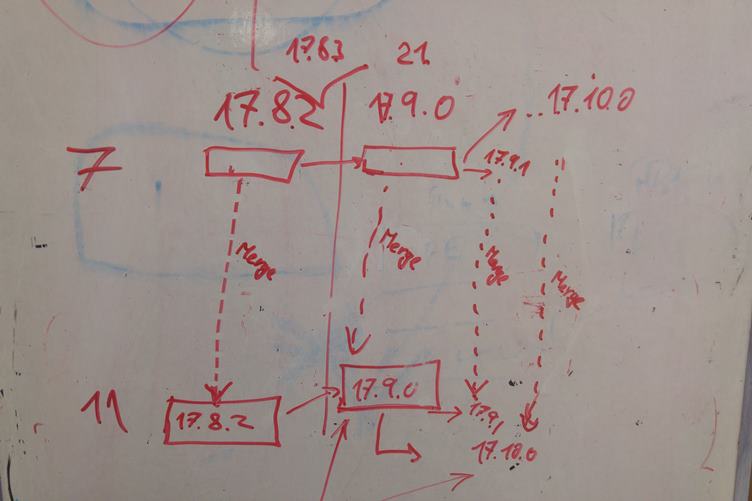 17.8.3 21.
17.8.2 17.9.0 ..17.10.0
7 17.9.1
Merge Merge Merge Merge
11 17.8.2 17.9.0 17.9.1
17.10.0